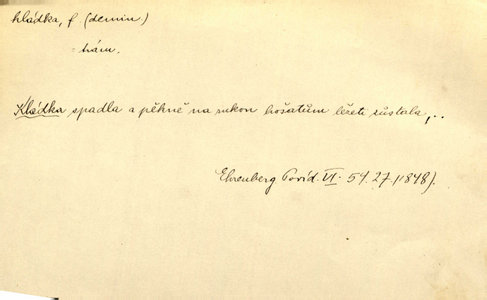 kládka, f. (demin)
= trám.
Kládka spadla a pěkně na rukou hošatům ležeti zůstala,..
Ehrenberg Povíd. VI. 54. 27 (1848).